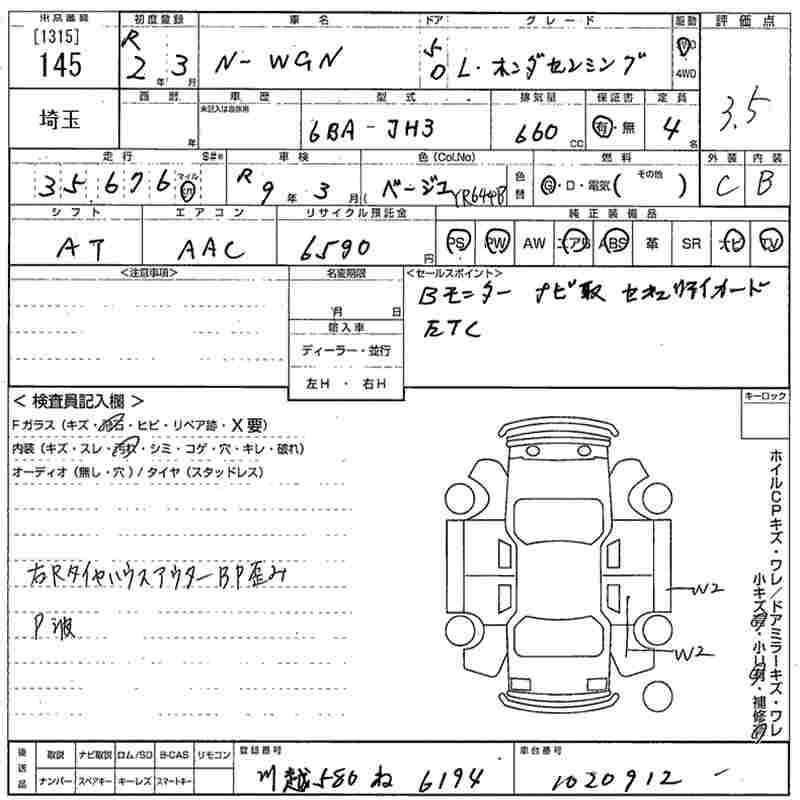 東京番号 初度登録 車名 ドア グレード 駆動 評価点
[1315]
145 R 2年 3月 N-WGN 50 L・ホンダセンシング 2WD 4WD 3.5
埼玉 西暦 年 車歴 未記入は自家用 型式 排気量 保証書 定員
6BA-JH3 660cc 有・無 4名
走行 S#* 車検 色(Col.No) 色替 燃料 外装 内装
35,676 マイル km R 9年 3月( ベージュ YR644P G・D・電気( その他 ) C B
シフト エアコン リサイクル預託金 純正装備品
AT AAC 6590円 PS PW AW エアB ABS 革 SR ナビ TV
<注意事項> 名変期限 <セールスポイント>
月 日 Bモニター ナビ取 セキュリティカード
輸入車 ETC
ディーラー・並行
左H ・ 右H
< 検査員記入欄 > キーロック
Fガラス(キズ・飛石・ヒビ・リペア跡・X要)
内装(キズ・スレ・汚れ・シミ・コゲ・穴・キレ・破れ)
オーディオ(無し・穴)/タイヤ(スタッドレス)
右Rタイヤハウスアウター BP歪み
P波
W2
W2
ホイルCPキズ・ワレ/ドアミラーキズ・ワレ
小キズ・小凹・補修
後送品 取説 ナビ取説 ロム/SD B-CAS リモコン 登録番号 車台番号
ナンバー スペアキー キーレス スマートキー 川越 580 ね 6194 1020912